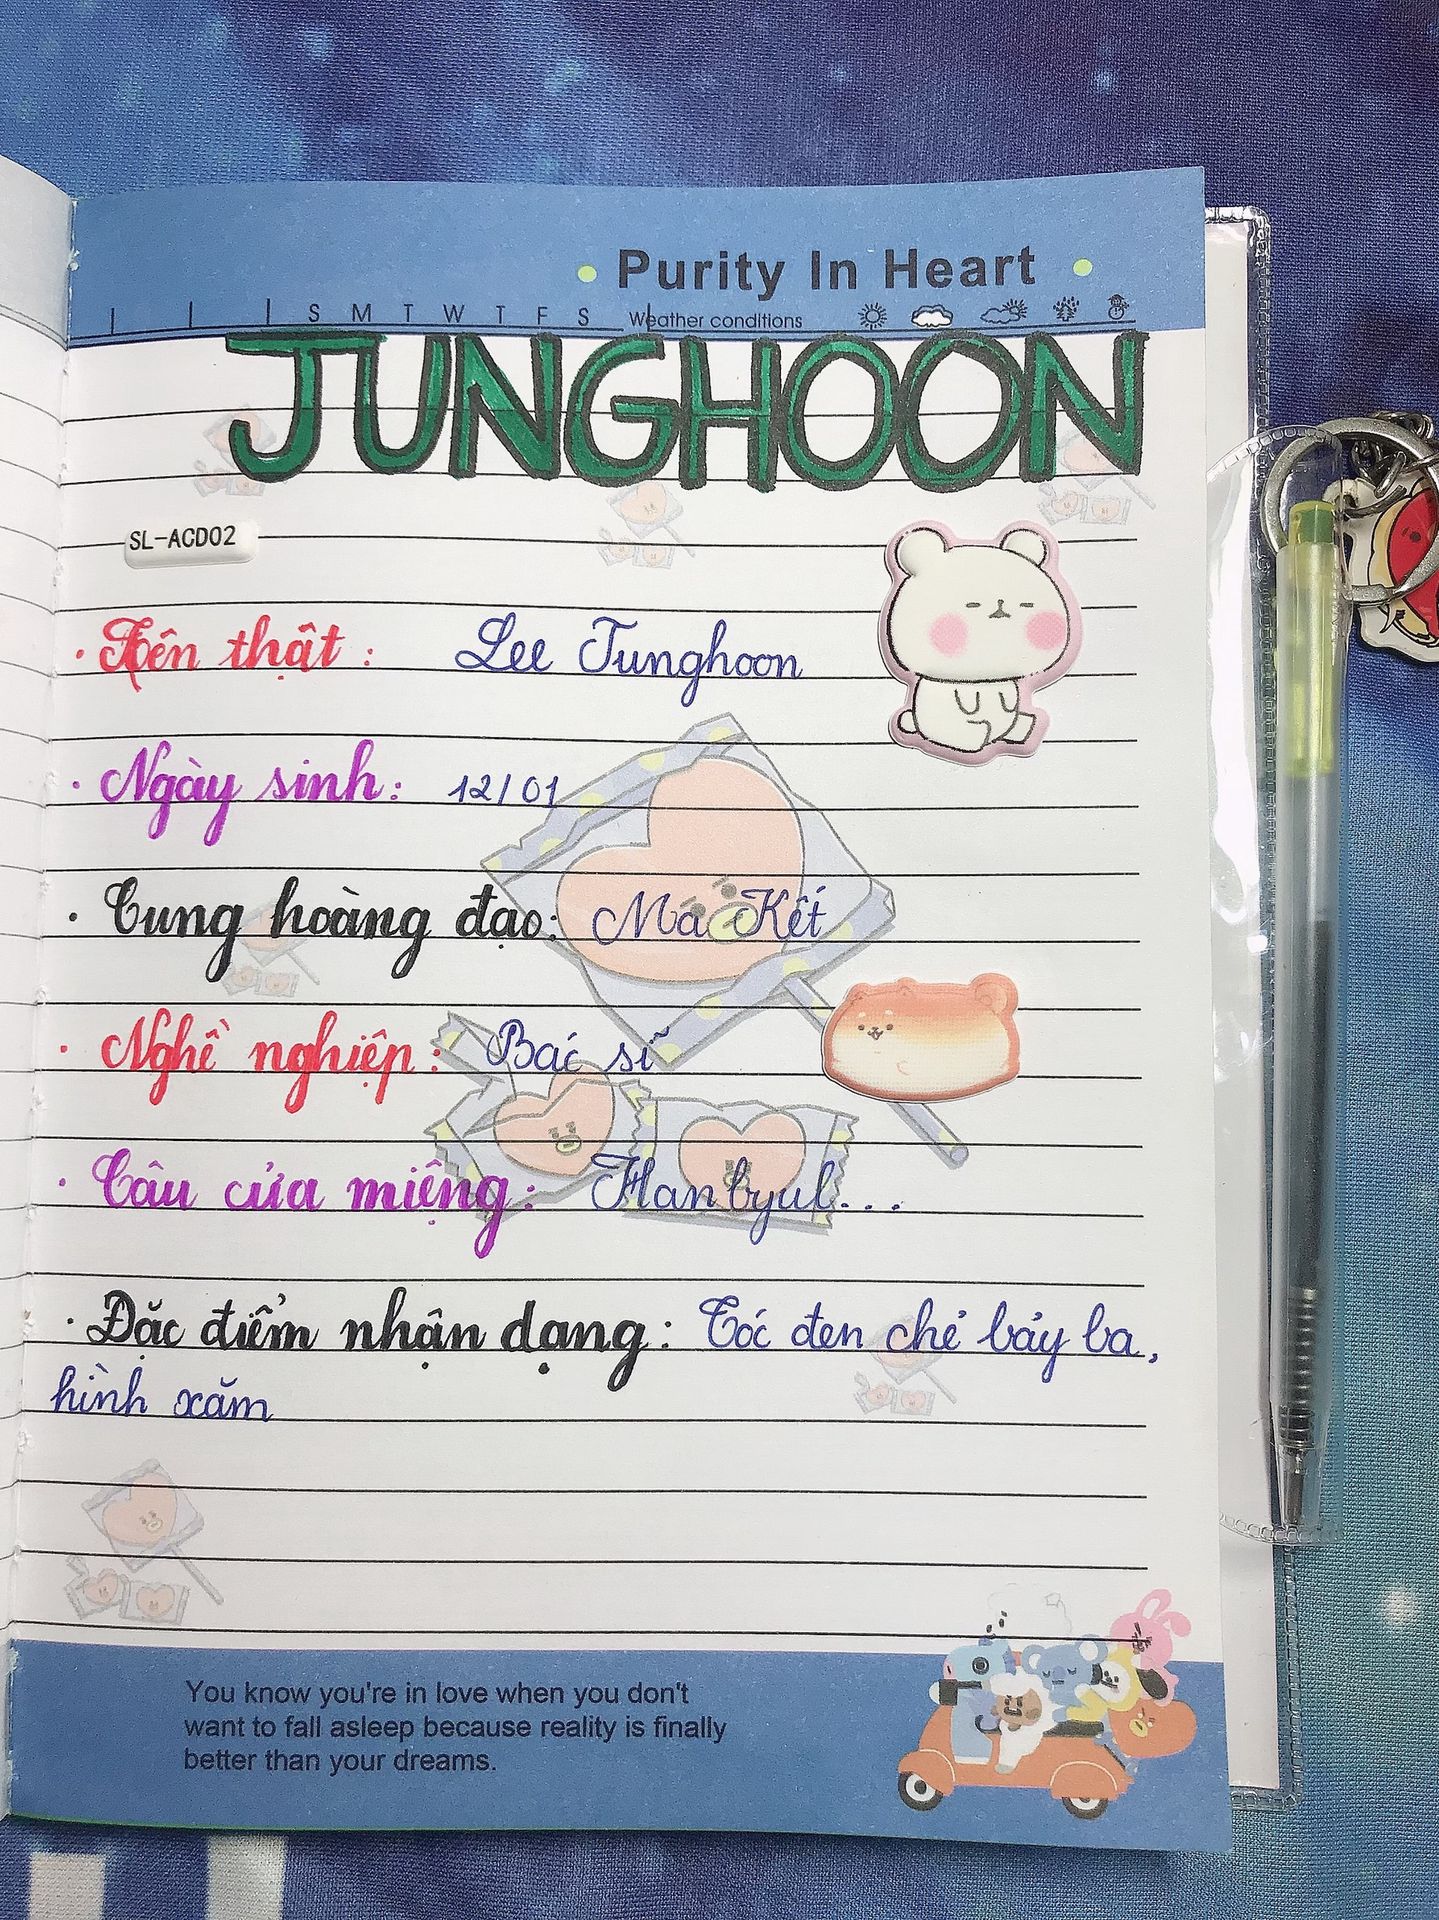 Purity In Heart
S M T W T F S Weather conditions
JUNGHOON
SL-ACD02
· Tên thật : Lee Junghoon
· Ngày sinh : 12/01
· Cung hoàng đạo: Ma Kết
· Nghề nghiệp : Bác sĩ
· Câu cửa miệng : Hanbyul...
· Đặc điểm nhận dạng : Tóc đen chẻ bảy ba,
hình xăm
You know you're in love when you don't
want to fall asleep because reality is finally
better than your dreams.